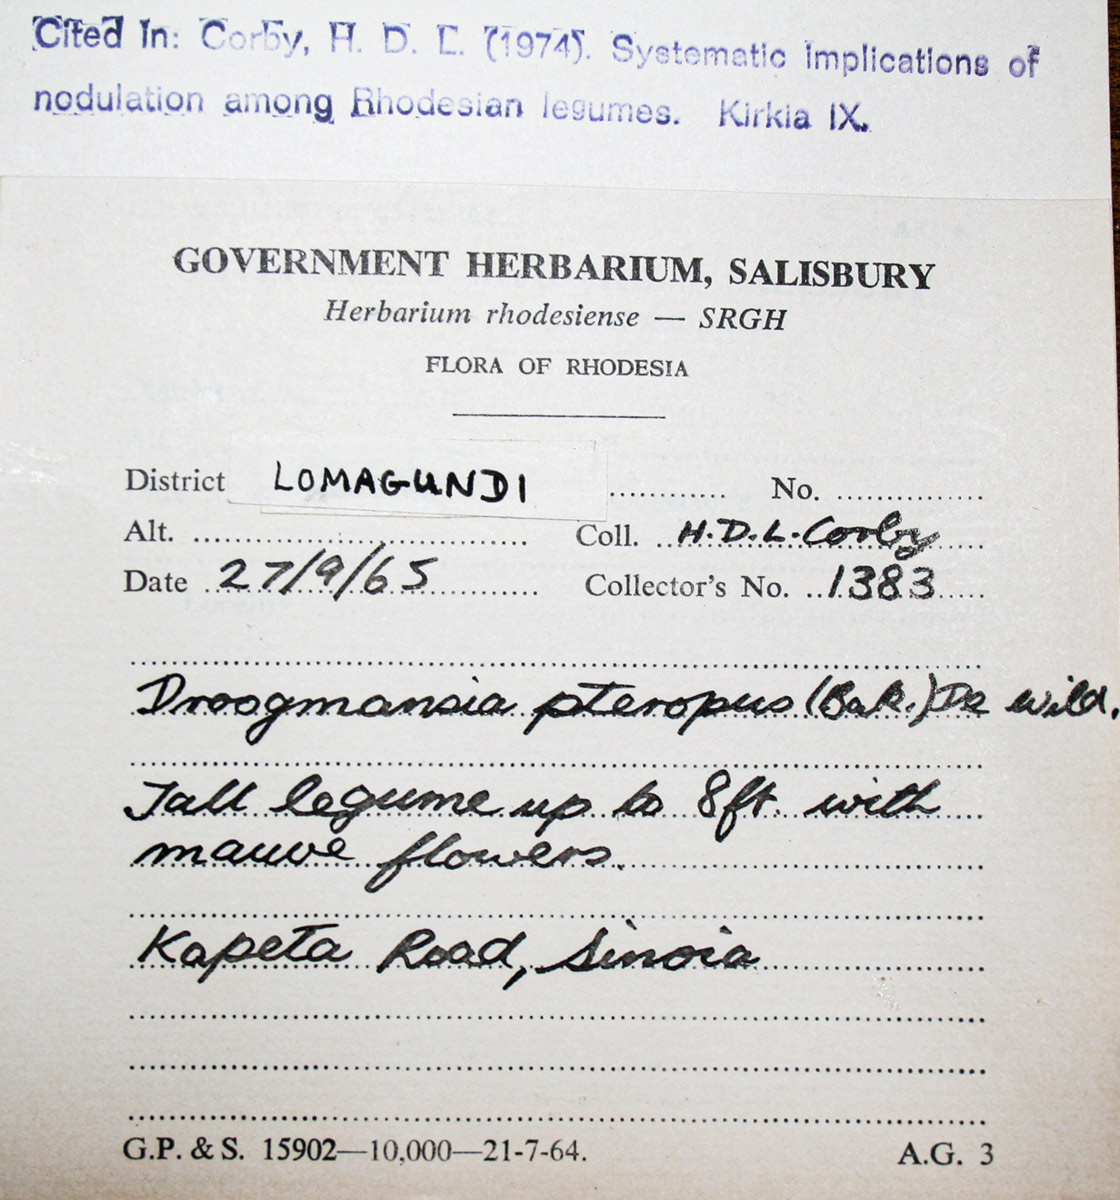 Cited In: Corby, H. D. L. (1974). Systematic implications of
nodulation among Rhodesian legumes. Kirkia IX.
GOVERNMENT HERBARIUM, SALISBURY
Herbarium rhodesiense — SRGH
FLORA OF RHODESIA
District LOMAGUNDI No.
Alt. Coll. H.D.L. Corby
Date 27/9/65 Collector's No. 1383
Droogmansia pteropus (Bak.) De Wild.
Tall legume up to 8ft. with
mauve flowers.
Kapeta Road, Sinoia
G.P. & S. 15902—10,000—21-7-64. A.G. 3